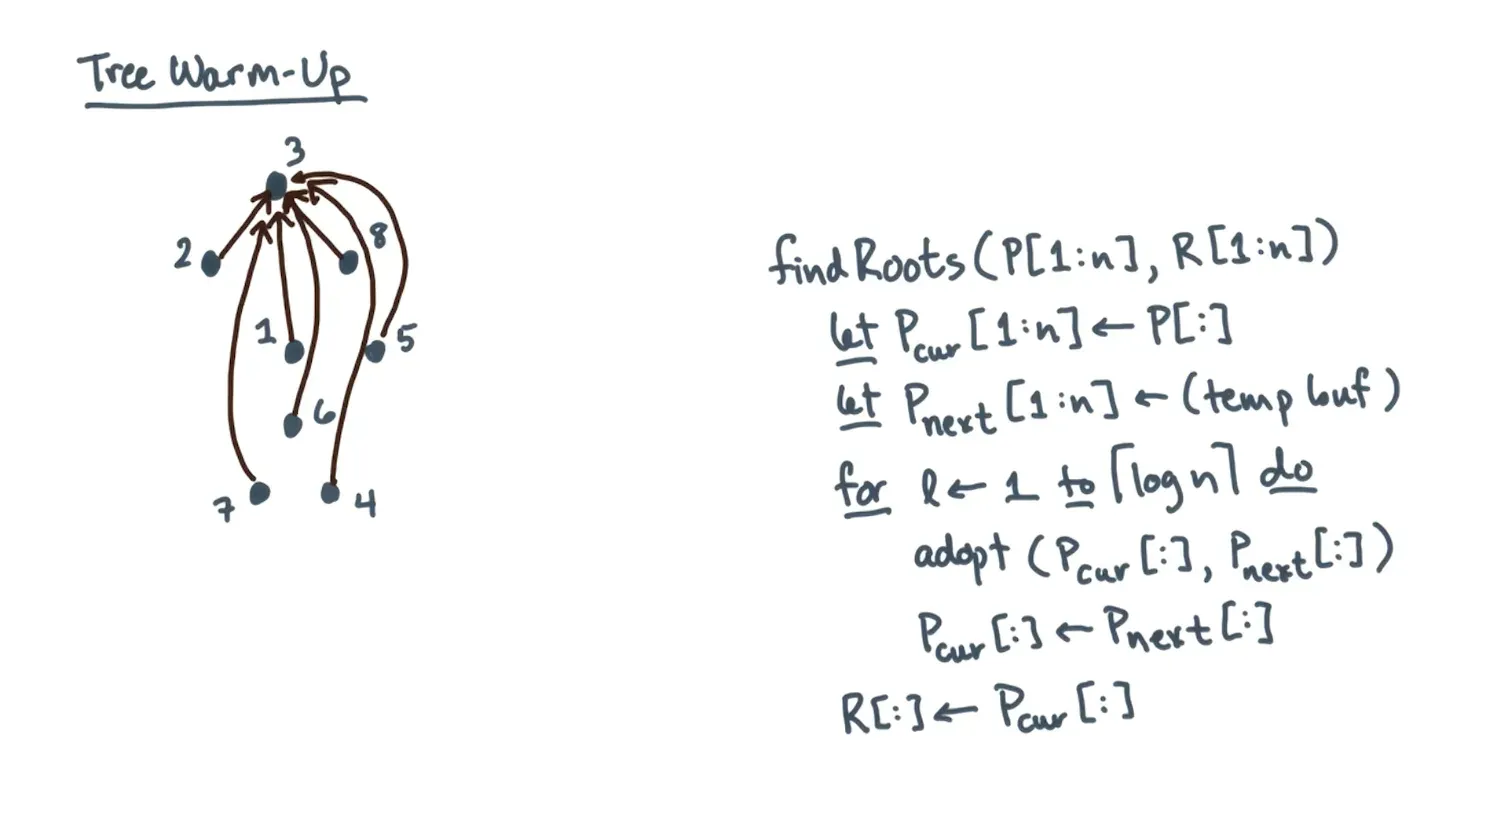 Tree Warm-Up
3
2
8
1
5
6
7
4
findRoots(P[1:n], R[1:n])
let Pcur[1:n] ← P[:]
let Pnext[1:n] ← (temp buf)
for l ← 1 to ⌈log n⌉ do
adopt (Pcur[:], Pnext[:])
Pcur[:] ← Pnext[:]
R[:] ← Pcur[:]